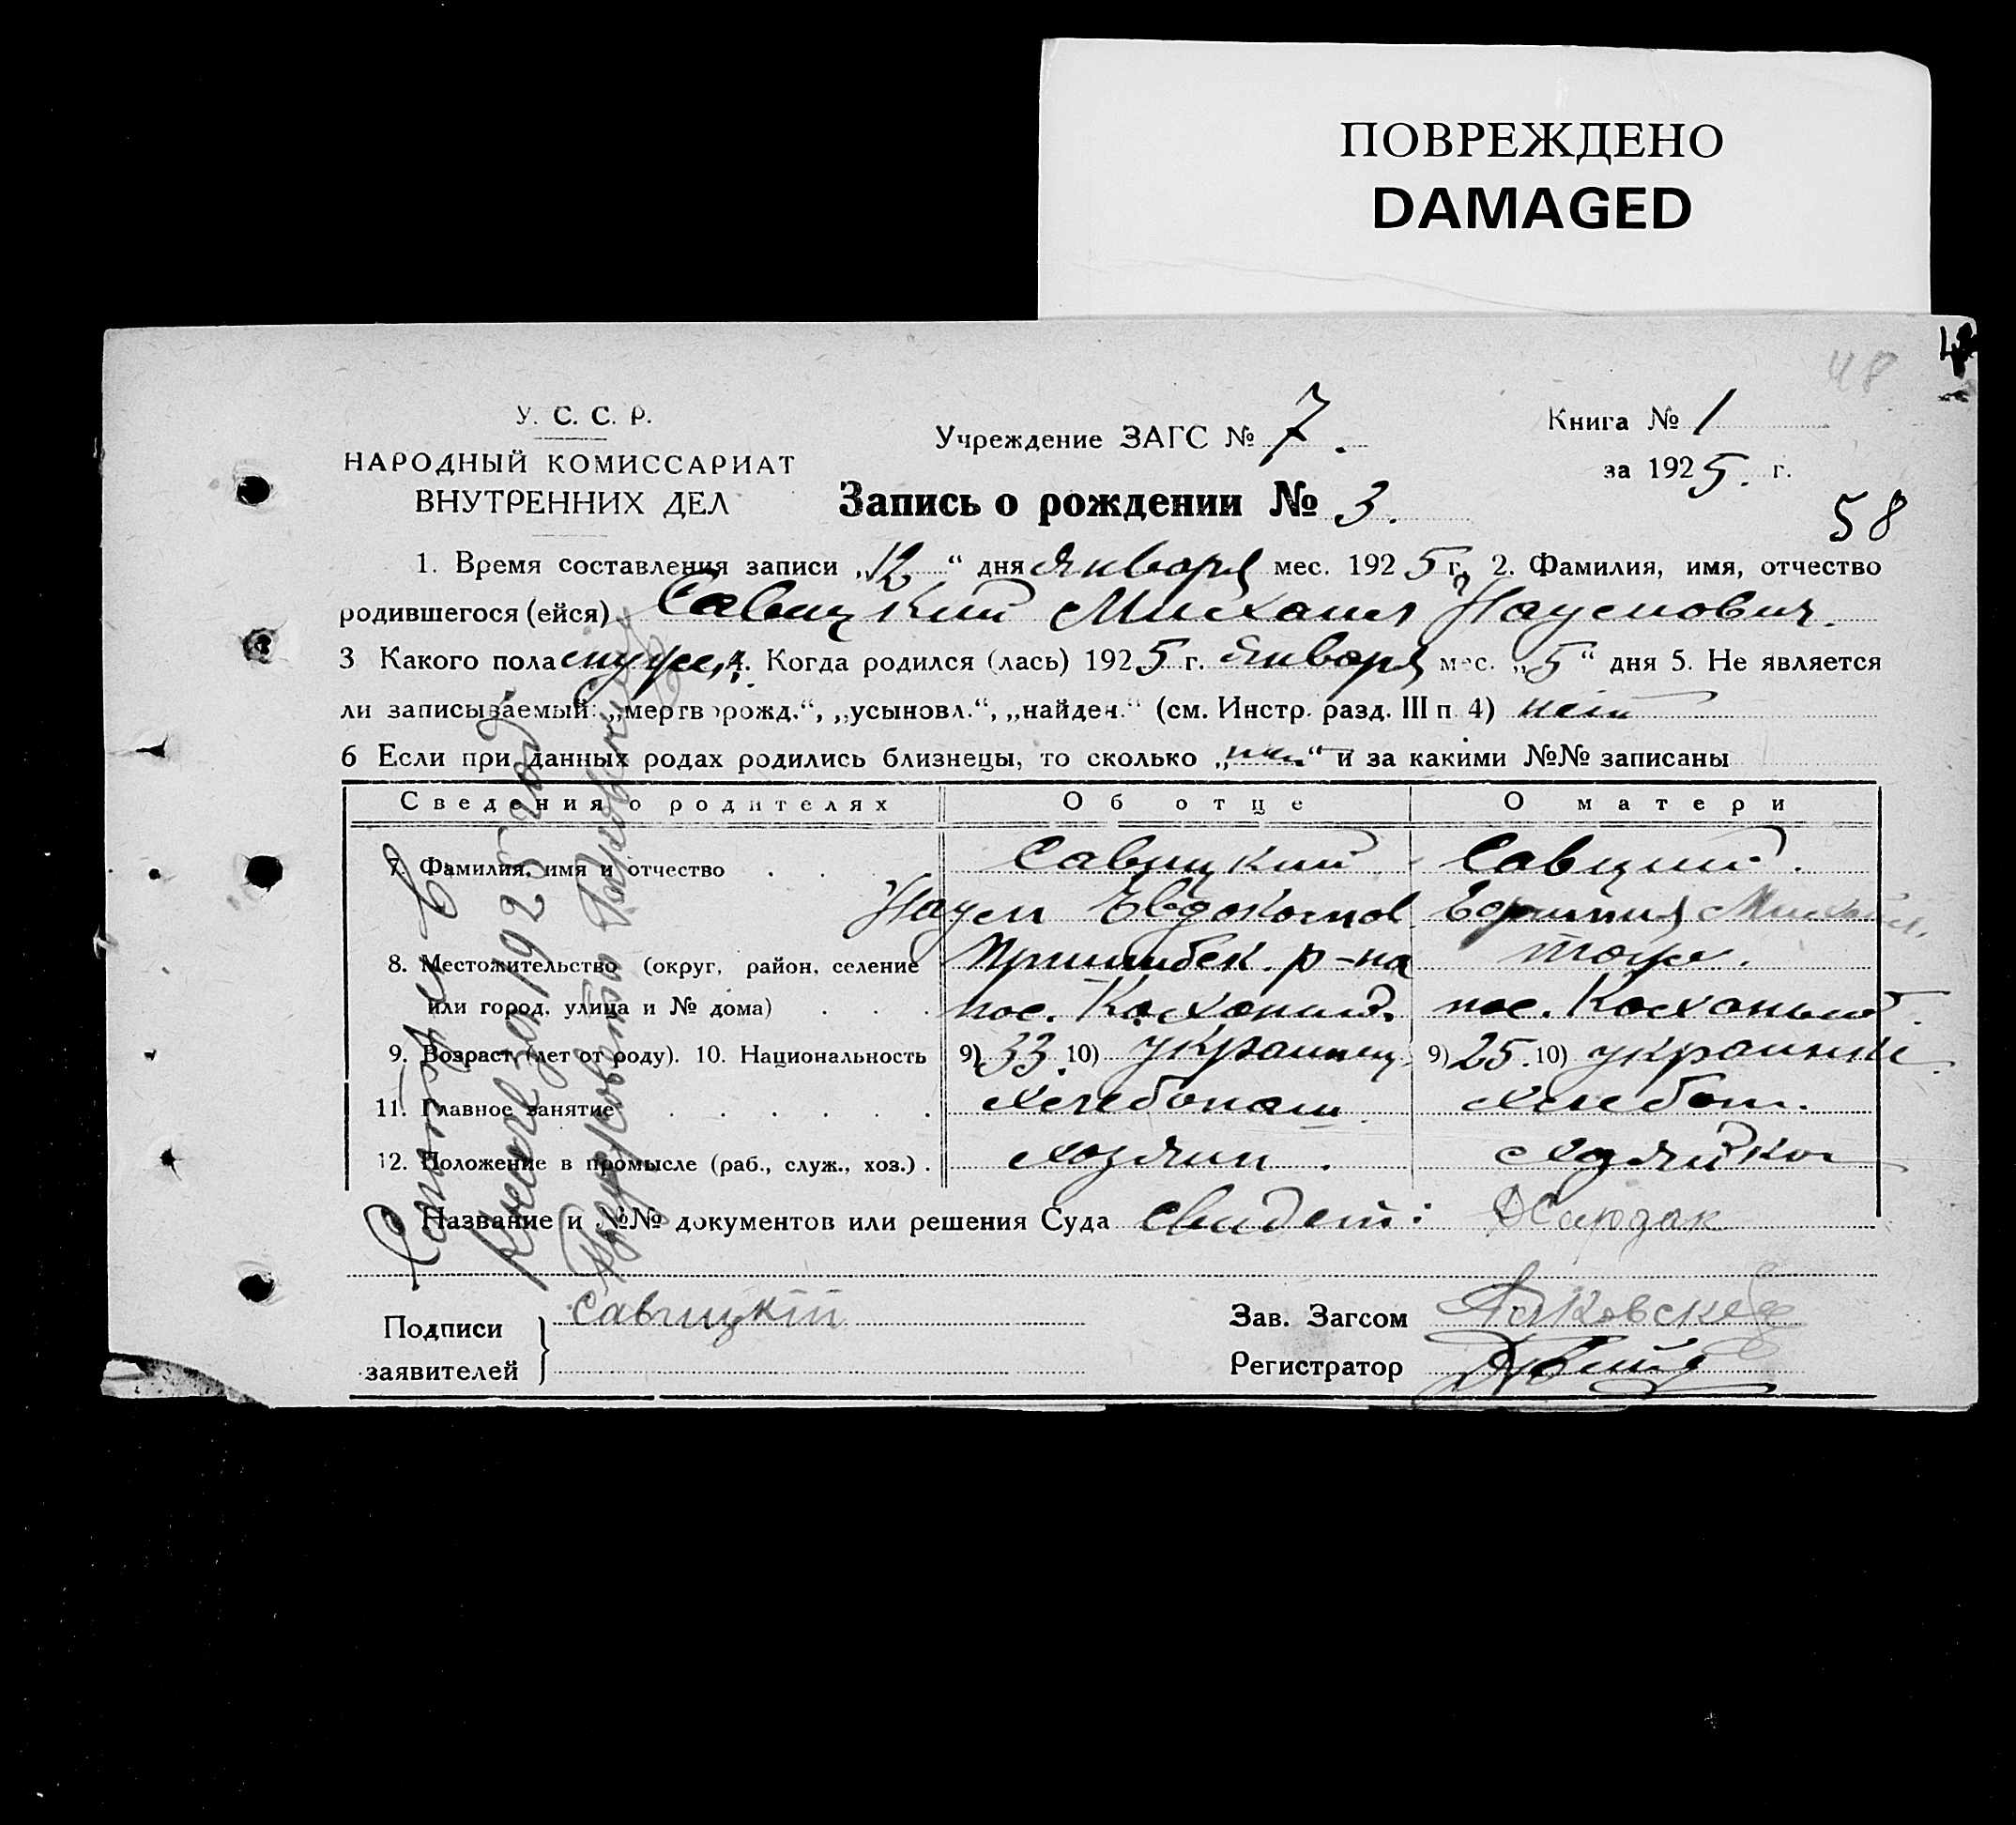 ПОВРЕЖДЕНО
DAMAGED
48
У. С. С. Р.
НАРОДНЫЙ КОМИССАРИАТ
ВНУТРЕННИХ ДЕЛ
Учреждение ЗАГС № 7.
Книга № 1
за 1925. г.
Запись о рождении № 3.
58
1. Время составления записи „12“ дня Января мес. 1925 г. 2. Фамилия, имя, отчество
родившегося (ейся) Савицкий Михаил Наумович.
3 Какого пола муж. 4. Когда родился (лась) 1925 г. Января мес. „5“ дня 5. Не является
ли записываемый: „мертворожд.“, „усыновл.“, „найден.“ (см. Инстр. разд. III п 4) нет
6 Если при данных родах родились близнецы, то сколько „ “ и за какими №№ записаны
Сведения о родителях Об отце О матери
7. Фамилия, имя и отчество Савицкий Савицкий.
Наум Евдокимов
8. Местожительство (округ, район, селение р-на тоже.
или город, улица и № дома) пос. пос.
9. Возраст (лет от роду). 10. Национальность 9) 33. 10) украинец 9) 25. 10) украинка
11. Главное занятие Хлебопаш Хлебоп.
12. Положение в промысле (раб., служ., хоз.) хозяин. хозяйка
Название и №№ документов или решения Суда Свидет:
Подписи заявителей Савицкий
Зав. Загсом
Регистратор
Книге за 1925 год